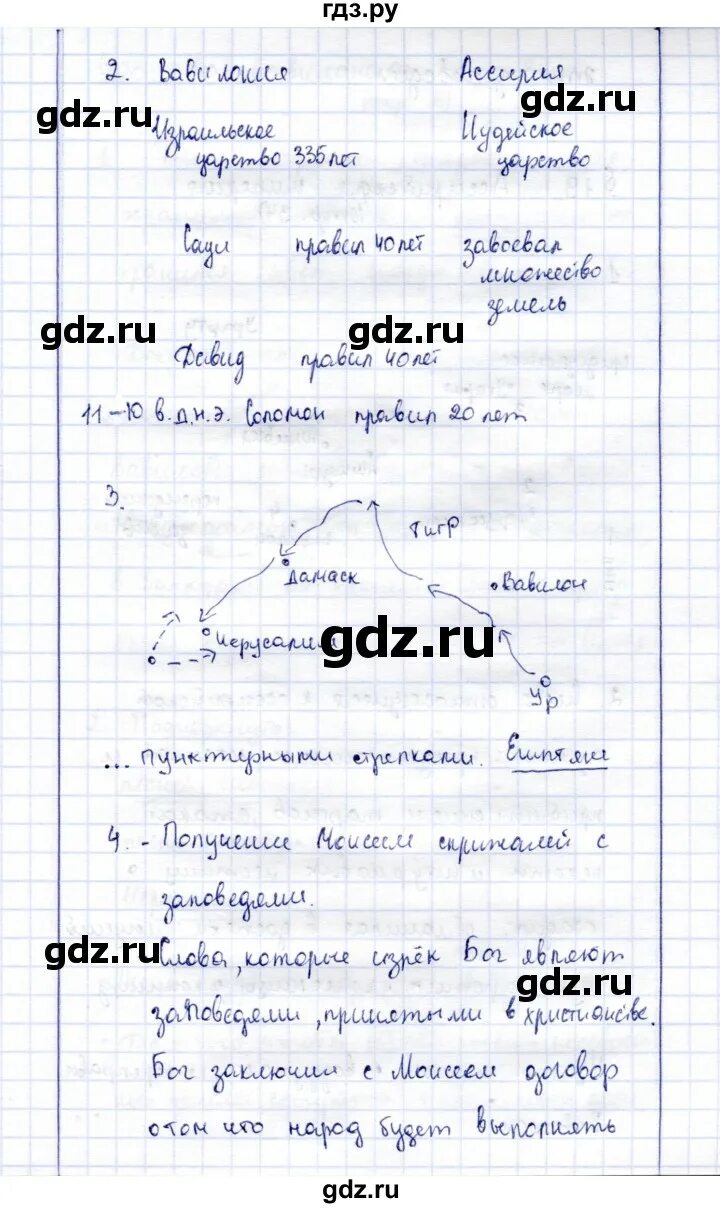 гдз.ру
2. Вавилония Ассирия
gdz.ru gdz.ru
Израильское Иудейское
царство 335 лет царство
Саул правил 40 лет завоевал
множество
земель
gdz.ru gdz.ru
Давид правил 40 лет
11-10 в.д.н.э. Соломон правил 20 лет
3.
Тигр
Дамаск
Вавилон
Иерусалим gdz.ru
Ур
... пунктерными стрелками. Египтяне
4. - Получение Моисеем скрижалей с
заповедями.
gdz.ru
Слова, которые изрёк Бог являют
gdz.ru
заповедями, принятыми в христианстве.
Бог заключил с Моисеем договор
отом что народ будет выполнять
gdz.ru